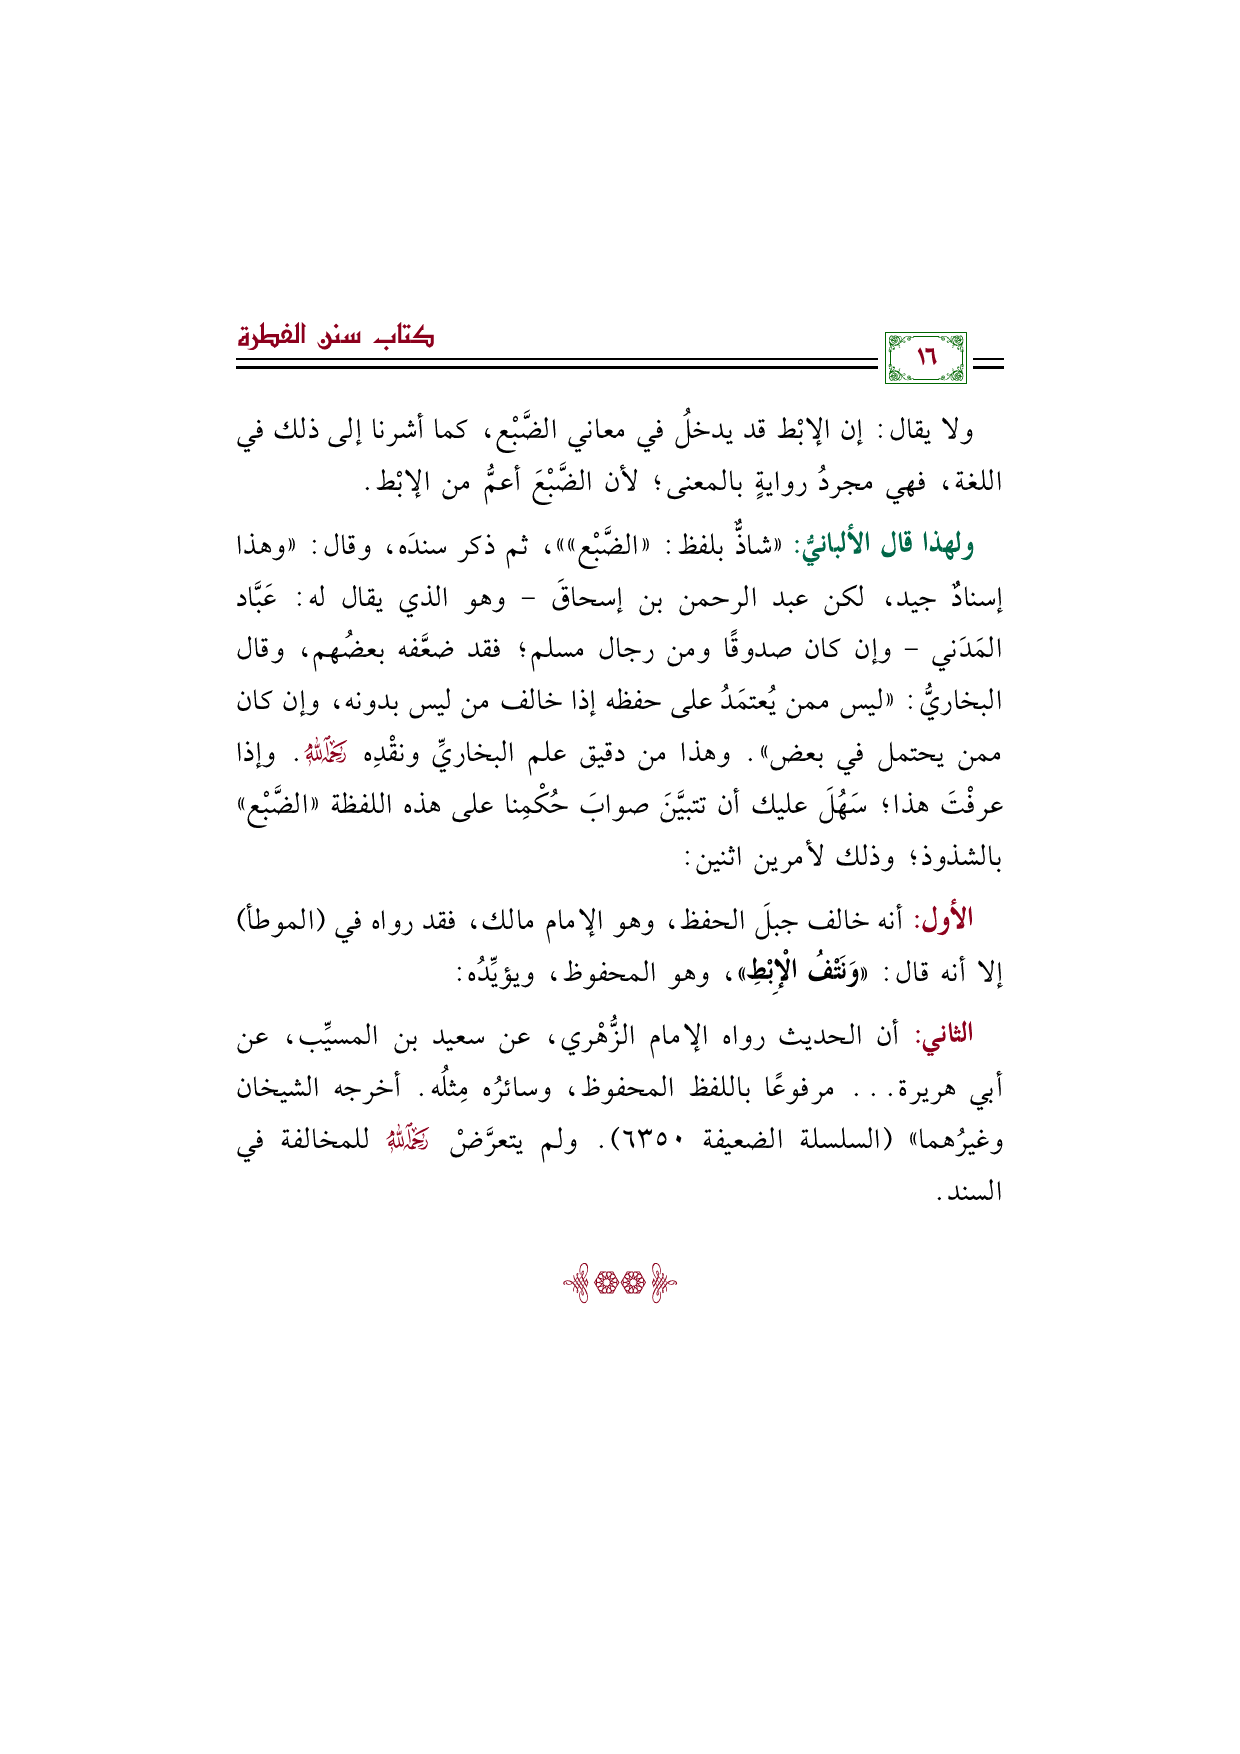 كتاب سنن الفطرة
١٦
ولا يقال: إن الإبْط قد يدخلُ في معاني الضَّبْع، كما أشرنا إلى ذلك في
اللغة، فهي مجردُ روايةٍ بالمعنى؛ لأن الضَّبْعَ أعمُّ من الإبْط.
ولهذا قال الألبانيُّ: «شاذٌّ بلفظ: «الضَّبْع»»، ثم ذكر سندَه، وقال: «وهذا
إسنادٌ جيد، لكن عبد الرحمن بن إسحاقَ – وهو الذي يقال له: عَبَّاد
المَدَني – وإن كان صدوقًا ومن رجال مسلم؛ فقد ضعَّفه بعضُهم، وقال
البخاريُّ: «ليس ممن يُعتمَدُ على حفظه إذا خالف من ليس بدونه، وإن كان
ممن يحتمل في بعض». وهذا من دقيق علم البخاريِّ ونقْدِه رحمه الله. وإذا
عرفْتَ هذا؛ سَهُلَ عليك أن تتبيَّنَ صوابَ حُكْمِنا على هذه اللفظة «الضَّبْع»
بالشذوذ؛ وذلك لأمرين اثنين:
الأول: أنه خالف جبلَ الحفظ، وهو الإمام مالك، فقد رواه في (الموطأ)
إلا أنه قال: «وَنَتْفُ الْإِبْطِ»، وهو المحفوظ، ويؤيِّدُه:
الثاني: أن الحديث رواه الإمام الزُّهْري، عن سعيد بن المسيِّب، عن
أبي هريرة... مرفوعًا باللفظ المحفوظ، وسائرُه مِثلُه. أخرجه الشيخان
وغيرُهما» (السلسلة الضعيفة ٦٣٥٠). ولم يتعرَّضْ رحمه الله للمخالفة في
السند.